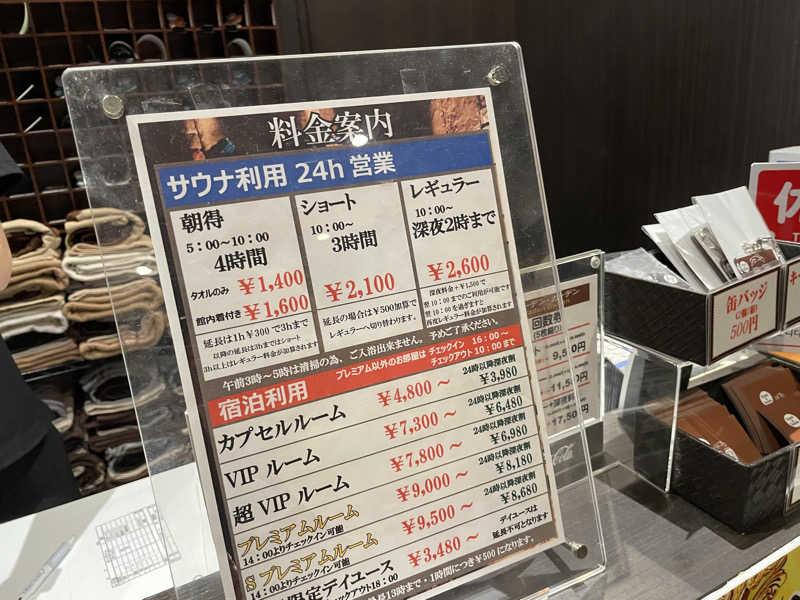 料金案内
サウナ利用 24h 営業
朝得
5：00～10：00
4時間
タオルのみ ￥1,400
館内着付き ￥1,600
延長は1h￥300で3hまで
以降の延長は3hまではショート
3h以上はレギュラー料金が加算されます
ショート
10：00～
3時間
￥2,100
延長の場合は￥500加算で
レギュラーへ切り替わります。
レギュラー
10：00～
深夜2時まで
￥2,600
深夜料金＋￥1,500で
翌10：00までのご利用が可能です
翌10：00を過ぎますと
再度レギュラー料金が加算されます
午前3時～5時は清掃の為、ご入浴出来ません。予めご了承ください。
宿泊利用
プレミアム以外のお部屋は チェックイン 16：00～
チェックアウト 10：00まで
カプセルルーム ￥4,800～ 24時以降深夜割 ￥3,980
VIP ルーム ￥7,300～ 24時以降深夜割 ￥6,480
超 VIP ルーム ￥7,800～ 24時以降深夜割 ￥6,980
プレミアムルーム ￥9,000～ 24時以降深夜割 ￥8,180
14：00よりチェックイン可能
S プレミアムルーム ￥9,500～ 24時以降深夜割 ￥8,680
14：00よりチェックイン可能
限定デイユース ￥3,480～ デイユースは
延長不可となります
チェックアウト18：00
13時まで・1時間につき￥500になります。
回数券
缶バッジ
500円